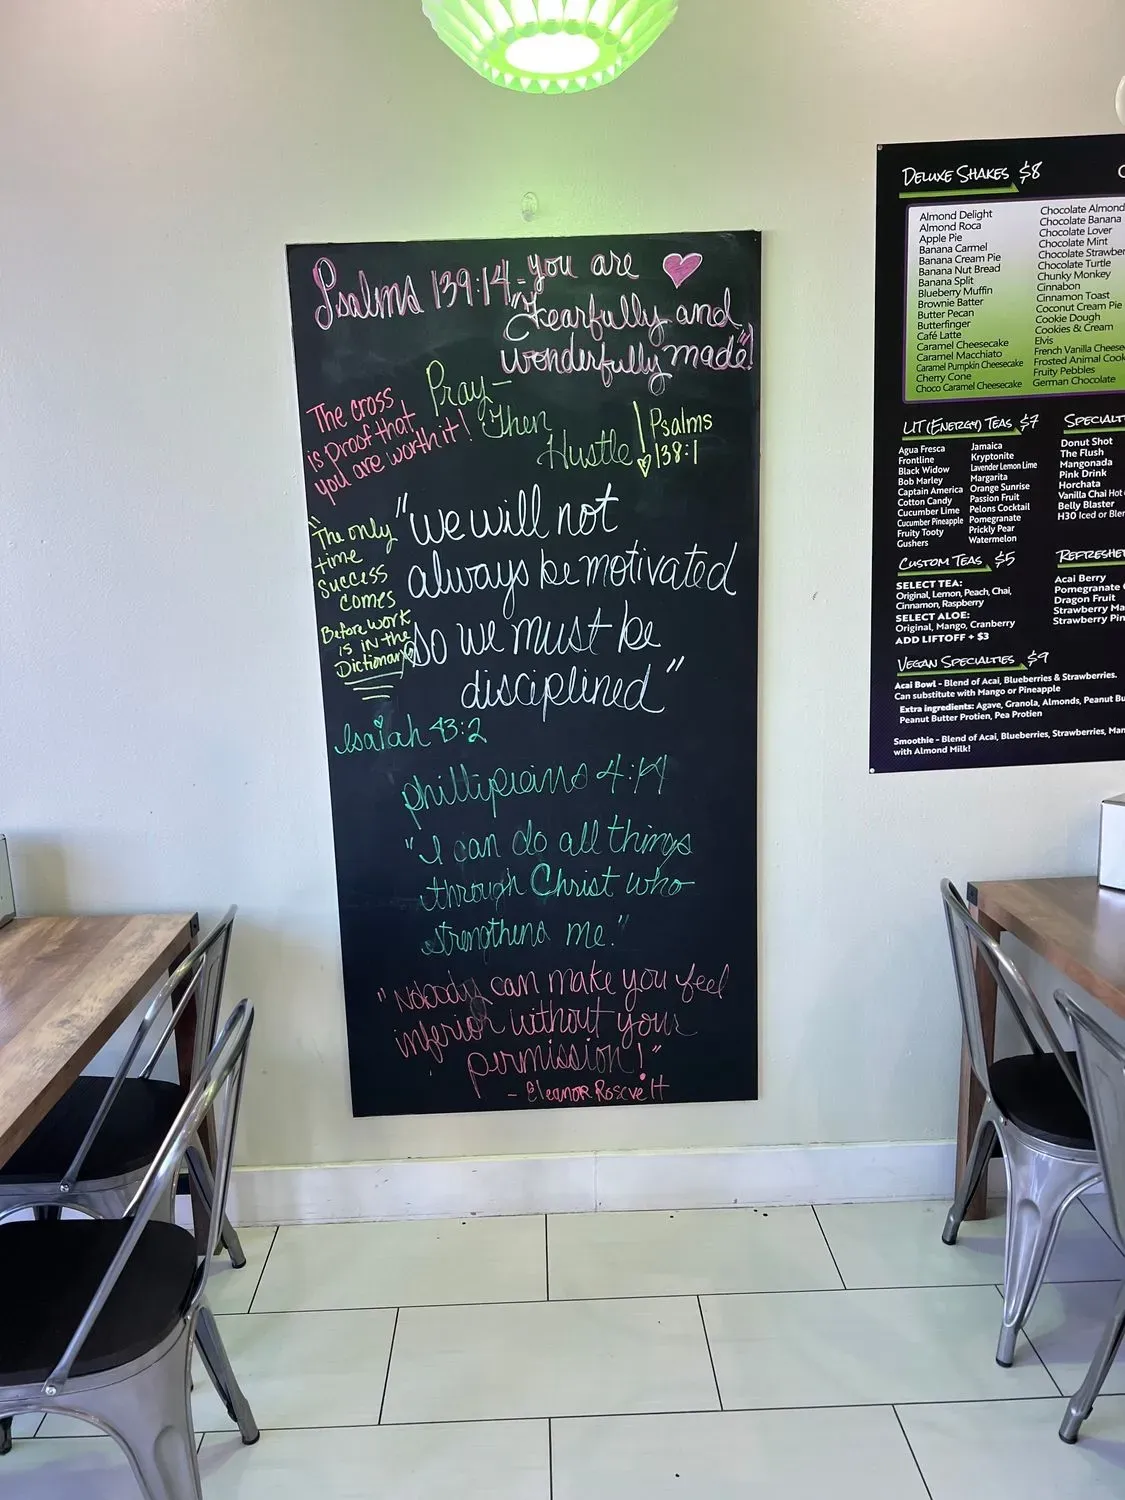 Psalms 139:14 - you are
"fearfully and
wonderfully made"!
The cross
is proof that
you are worth it!
Pray -
Then
Hustle!
Psalms
138:1
"The only
time
success
comes
Before work
is in the
Dictionary"
"we will not
always be motivated
so we must be
disciplined"
Isaiah 43:2
phillipeians 4:14
"I can do all things
through Christ who
strengthens me."
"Nobody can make you feel
inferior without your
permission!"
- Eleanor Roscvelt
DELUXE SHAKES $8
Almond Delight
Almond Roca
Apple Pie
Banana Carmel
Banana Cream Pie
Banana Nut Bread
Banana Split
Blueberry Muffin
Brownie Batter
Butter Pecan
Butterfinger
Café Latte
Caramel Cheesecake
Caramel Macchiato
Caramel Pumpkin Cheesecake
Cherry Cone
Choco Caramel Cheesecake
Chocolate Almond
Chocolate Banana
Chocolate Lover
Chocolate Mint
Chocolate Strawber
Chocolate Turtle
Chunky Monkey
Cinnabon
Cinnamon Toast
Coconut Cream Pie
Cookie Dough
Cookies & Cream
Elvis
French Vanilla Cheese
Frosted Animal Cook
Fruity Pebbles
German Chocolate
LIT (ENERGY) TEAS $7
Agua Fresca
Frontline
Black Widow
Bob Marley
Captain America
Cotton Candy
Cucumber Lime
Cucumber Pineapple
Fruity Tooty
Gushers
Jamaica
Kryptonite
Lavender Lemon Lime
Margarita
Orange Sunrise
Passion Fruit
Pelons Cocktail
Pomegranate
Prickly Pear
Watermelon
SPECIALT
Donut Shot
The Flush
Mangonada
Pink Drink
Horchata
Vanilla Chai Hot
Belly Blaster
H30 Iced or Blen
CUSTOM TEAS $5
SELECT TEA:
Original, Lemon, Peach, Chai,
Cinnamon, Raspberry
SELECT ALOE:
Original, Mango, Cranberry
ADD LIFTOFF + $3
REFRESHE
Acai Berry
Pomegranate
Dragon Fruit
Strawberry Ma
Strawberry Pin
VEGAN SPECIALTIES $9
Acai Bowl - Blend of Acai, Blueberries & Strawberries.
Can substitute with Mango or Pineapple
Extra ingredients: Agave, Granola, Almonds, Peanut Bu
Peanut Butter Protien, Pea Protien
Smoothie - Blend of Acai, Blueberries, Strawberries, Man
with Almond Milk!